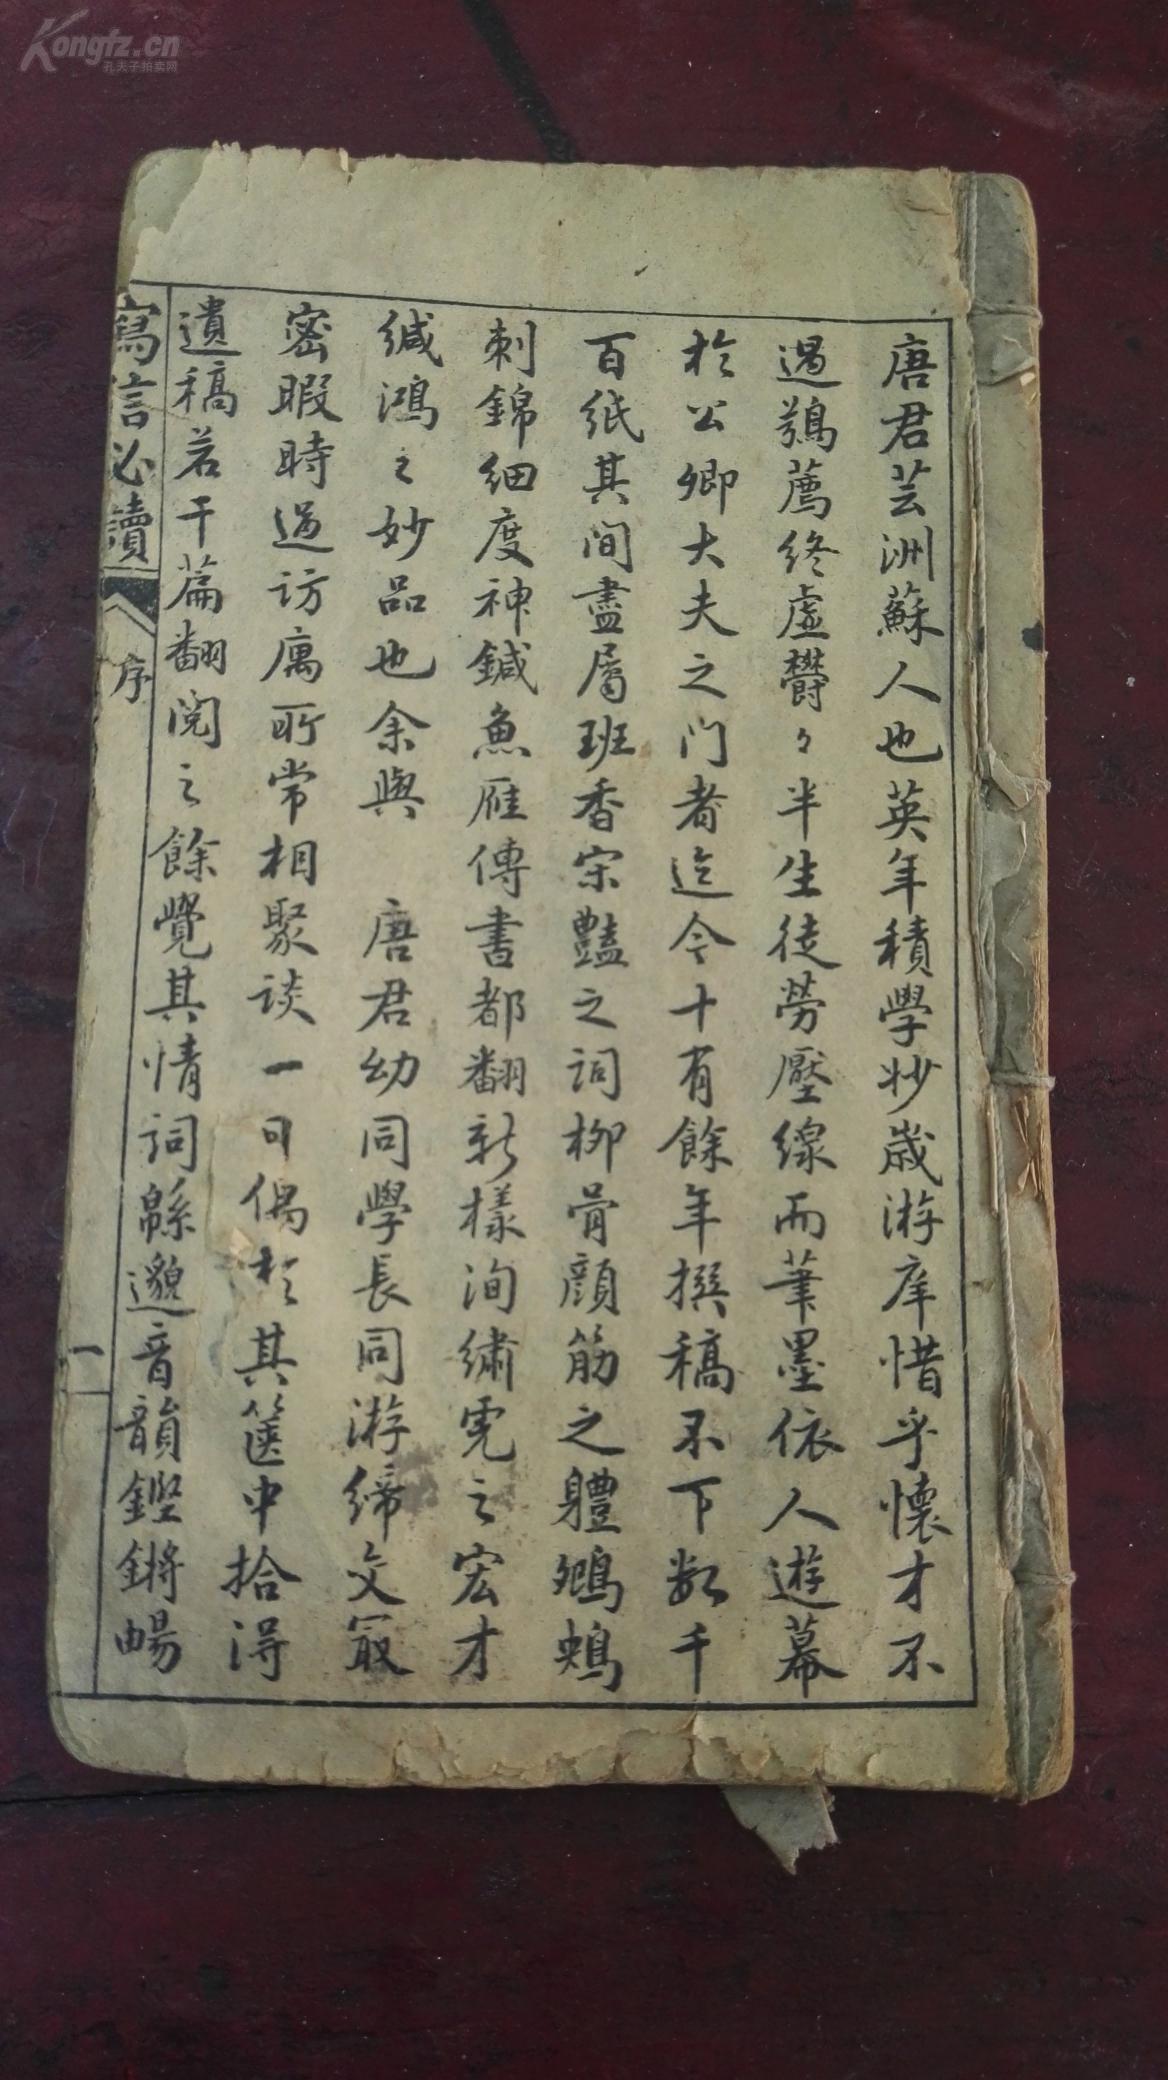 唐君芸洲蘇人也英年積學妙歲游庠惜乎懷才不
遇鶚薦終虛鬱々半生徒勞壓線而筆墨依人遊幕
於公卿大夫之門者迄今十有餘年撰稿不下數千
百紙其間盡屬班香宋豔之詞柳骨顏筋之體鴂鴂
刺錦細度神鍼魚雁傳書都翻新樣洵繡虎之宏才
緘鴻之妙品也余與 唐君幼同學長同游締交最
密暇時過訪寓所常相聚談一日偶於其篋中拾得
遺稿若干篇翻閱之餘覺其情詞緜邈音韻鏗鏘暢
寫信必讀 序 一
Kongfz.cn
孔夫子拍卖网